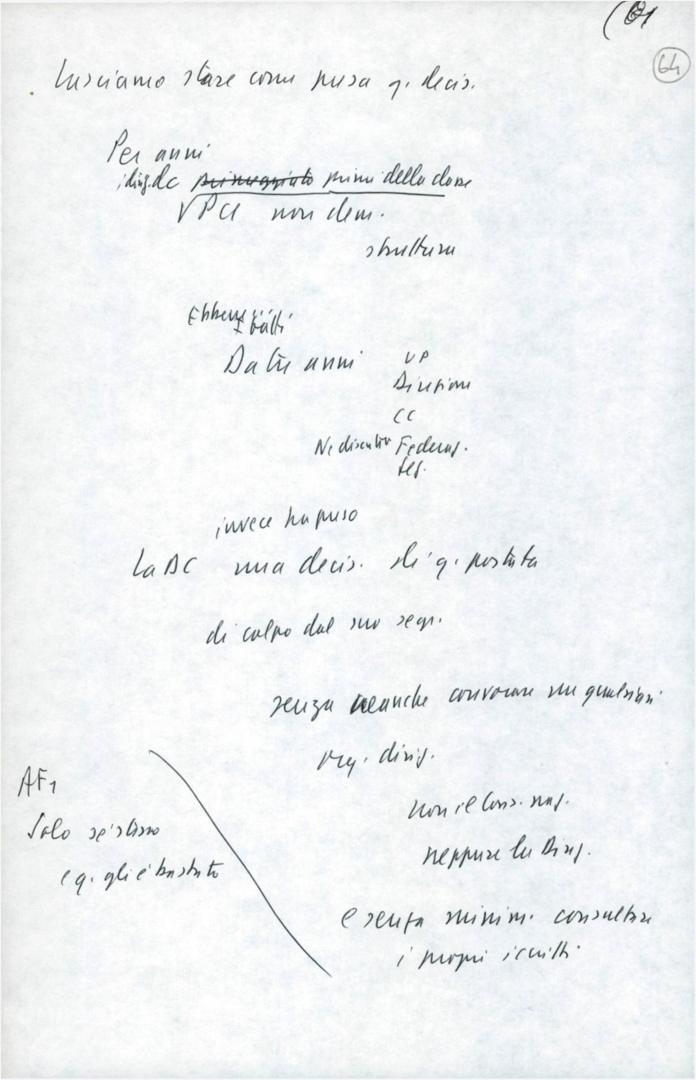 64
Lasciamo stare come presa q. decis.
Per anni
i dirig. dc primi della classe
PCI non dem.
struttura
Ebbene
I fatti
Da tre anni
UP
Direzione
CC
Ne discutono Federaz.
Sez.
invece ha preso
La DC una decis. di q. portata
di colpo dal suo segr.
senza neanche convocare un qualsiasi
org. dirig.
non il Cons. naz.
neppure la Direz.
AF1
Solo se stesso
e q. gli è bastato
e senza minim. consultare
i propri iscritti